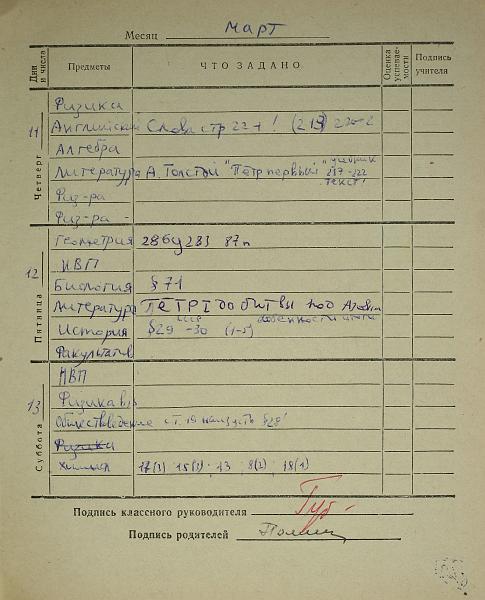 Месяц Март
Дни и числа Предметы ЧТО ЗАДАНО Оценка успеваемости Подпись учителя
Четверг 11
Физика
Английский Слова стр 22+! (213)
Алгебра
Литература А. Толстой "Петр первый" учебник 217-222 текст!
Физ-ра
Физ-ра -
Пятница 12
Геометрия 286 283 87п
НВП
Биология § 71
Литература ПЕТР I до битвы под Азовом
История § 29 -30 (1-5)
Факультатив
Суббота 13
НВП
Физика
Обществоведение ст. 19 наизусть § 28
Физика
Химия 17(1) 15(1) 13 8(2) 18(1)
Подпись классного руководителя
Подпись родителей